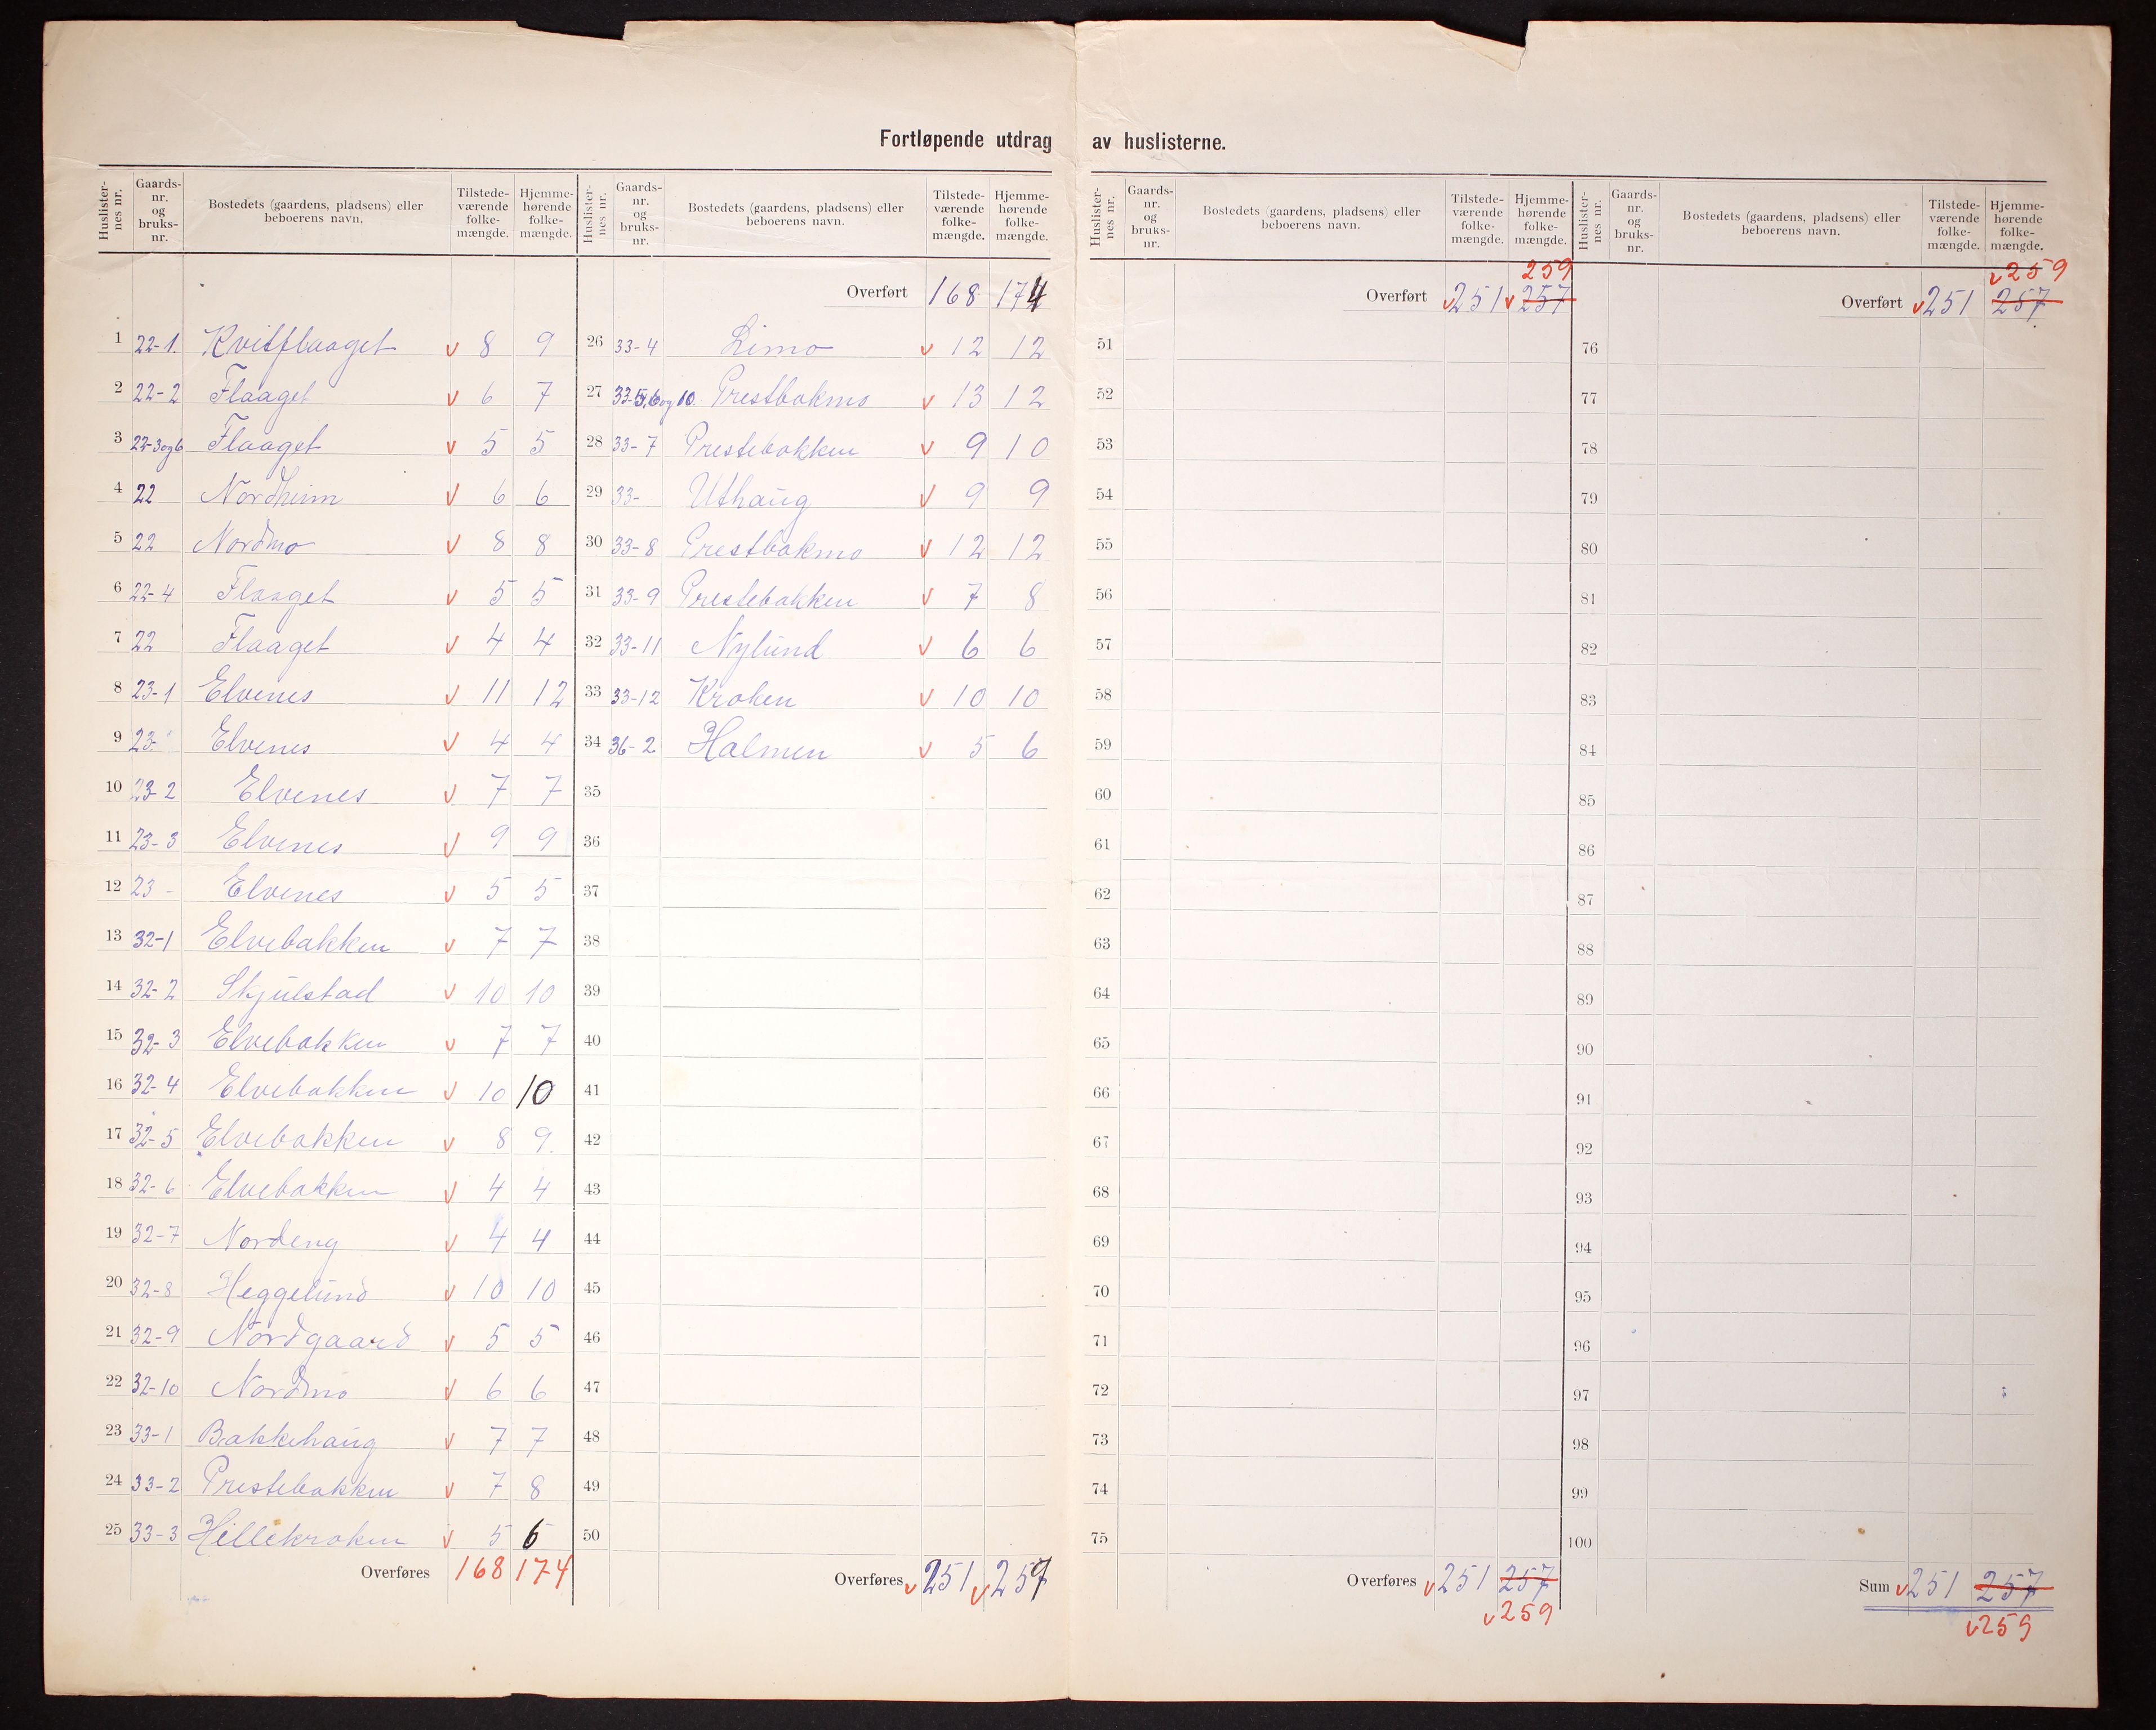 Fortløpende utdrag av huslisterne.
Huslisternes nr. Gaards-nr. og bruks-nr. Bostedets (gaardens, pladsens) eller beboerens navn. Tilstede-værende folke-mængde. Hjemme-hørende folke-mængde.
1 22-1. Kvitflaaget v 8 9
2 22-2 Flaaget v 6 7
3 22-3og6 Flaaget v 5 5
4 22 Nordheim v 6 6
5 22 Nordmo v 8 8
6 22-4 Flaaget v 5 5
7 22 Flaaget v 4 4
8 23-1 Elvenes v 11 12
9 23- Elvenes v 4 4
10 23-2 Elvenes v 7 7
11 23-3 Elvenes v 9 9
12 23- Elvenes v 5 5
13 32-1 Elvebakken v 7 7
14 32-2 Skjulstad v 10 10
15 32-3 Elvebakken v 7 7
16 32-4 Elvebakken v 10 10
17 32-5 Elvebakken v 8 9.
18 32-6 Elvebakken v 4 4
19 32-7 Nordeng v 4 4
20 32-8 Heggelund v 10 10
21 32-9 Nordgaard v 5 5
22 32-10 Nordmo v 6 6
23 33-1 Bakkehaug v 7 7
24 33-2 Prestebakken v 7 8
25 33-3 Hillekroken v 5 6
Overføres 168 174
Huslisternes nr. Gaards-nr. og bruks-nr. Bostedets (gaardens, pladsens) eller beboerens navn. Tilstede-værende folke-mængde. Hjemme-hørende folke-mængde.
Overført 168 174
26 33-4 Limo v 12 12
27 33-5,6og10. Prestbakmo v 13 12
28 33-7 Prestebakken v 9 10
29 33- Uthaug v 9 9
30 33-8 Prestbakmo v 12 12
31 33-9 Prestebakken v 7 8
32 33-11 Nylund v 6 6
33 33-12 Kroken v 10 10
34 36-2 Halmen v 5 6
35
36
37
38
39
40
41
42
43
44
45
46
47
48
49
50
Overføres v 251 v 259
Huslisternes nr. Gaards-nr. og bruks-nr. Bostedets (gaardens, pladsens) eller beboerens navn. Tilstede-værende folke-mængde. Hjemme-hørende folke-mængde.
259
Overført v 251 v 257
51
52
53
54
55
56
57
58
59
60
61
62
63
64
65
66
67
68
69
70
71
72
73
74
75
Overføres v 251 257
v 259
Huslisternes nr. Gaards-nr. og bruks-nr. Bostedets (gaardens, pladsens) eller beboerens navn. Tilstede-værende folke-mængde. Hjemme-hørende folke-mængde.
v 259
Overført v 251 257
76
77
78
79
80
81
82
83
84
85
86
87
88
89
90
91
92
93
94
95
96
97
98
99
100
Sum v 251 257
v 259